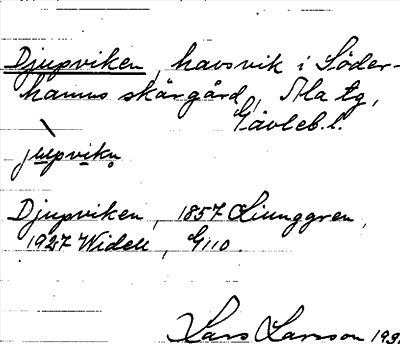 Djupviken, havsvik i Söder-
hamns skärgård, Ala tg,
Gävleb.l.
jupvikn
Djupviken, 1857 Ljunggren,
1927 Widell, G110.
Lars Larsson